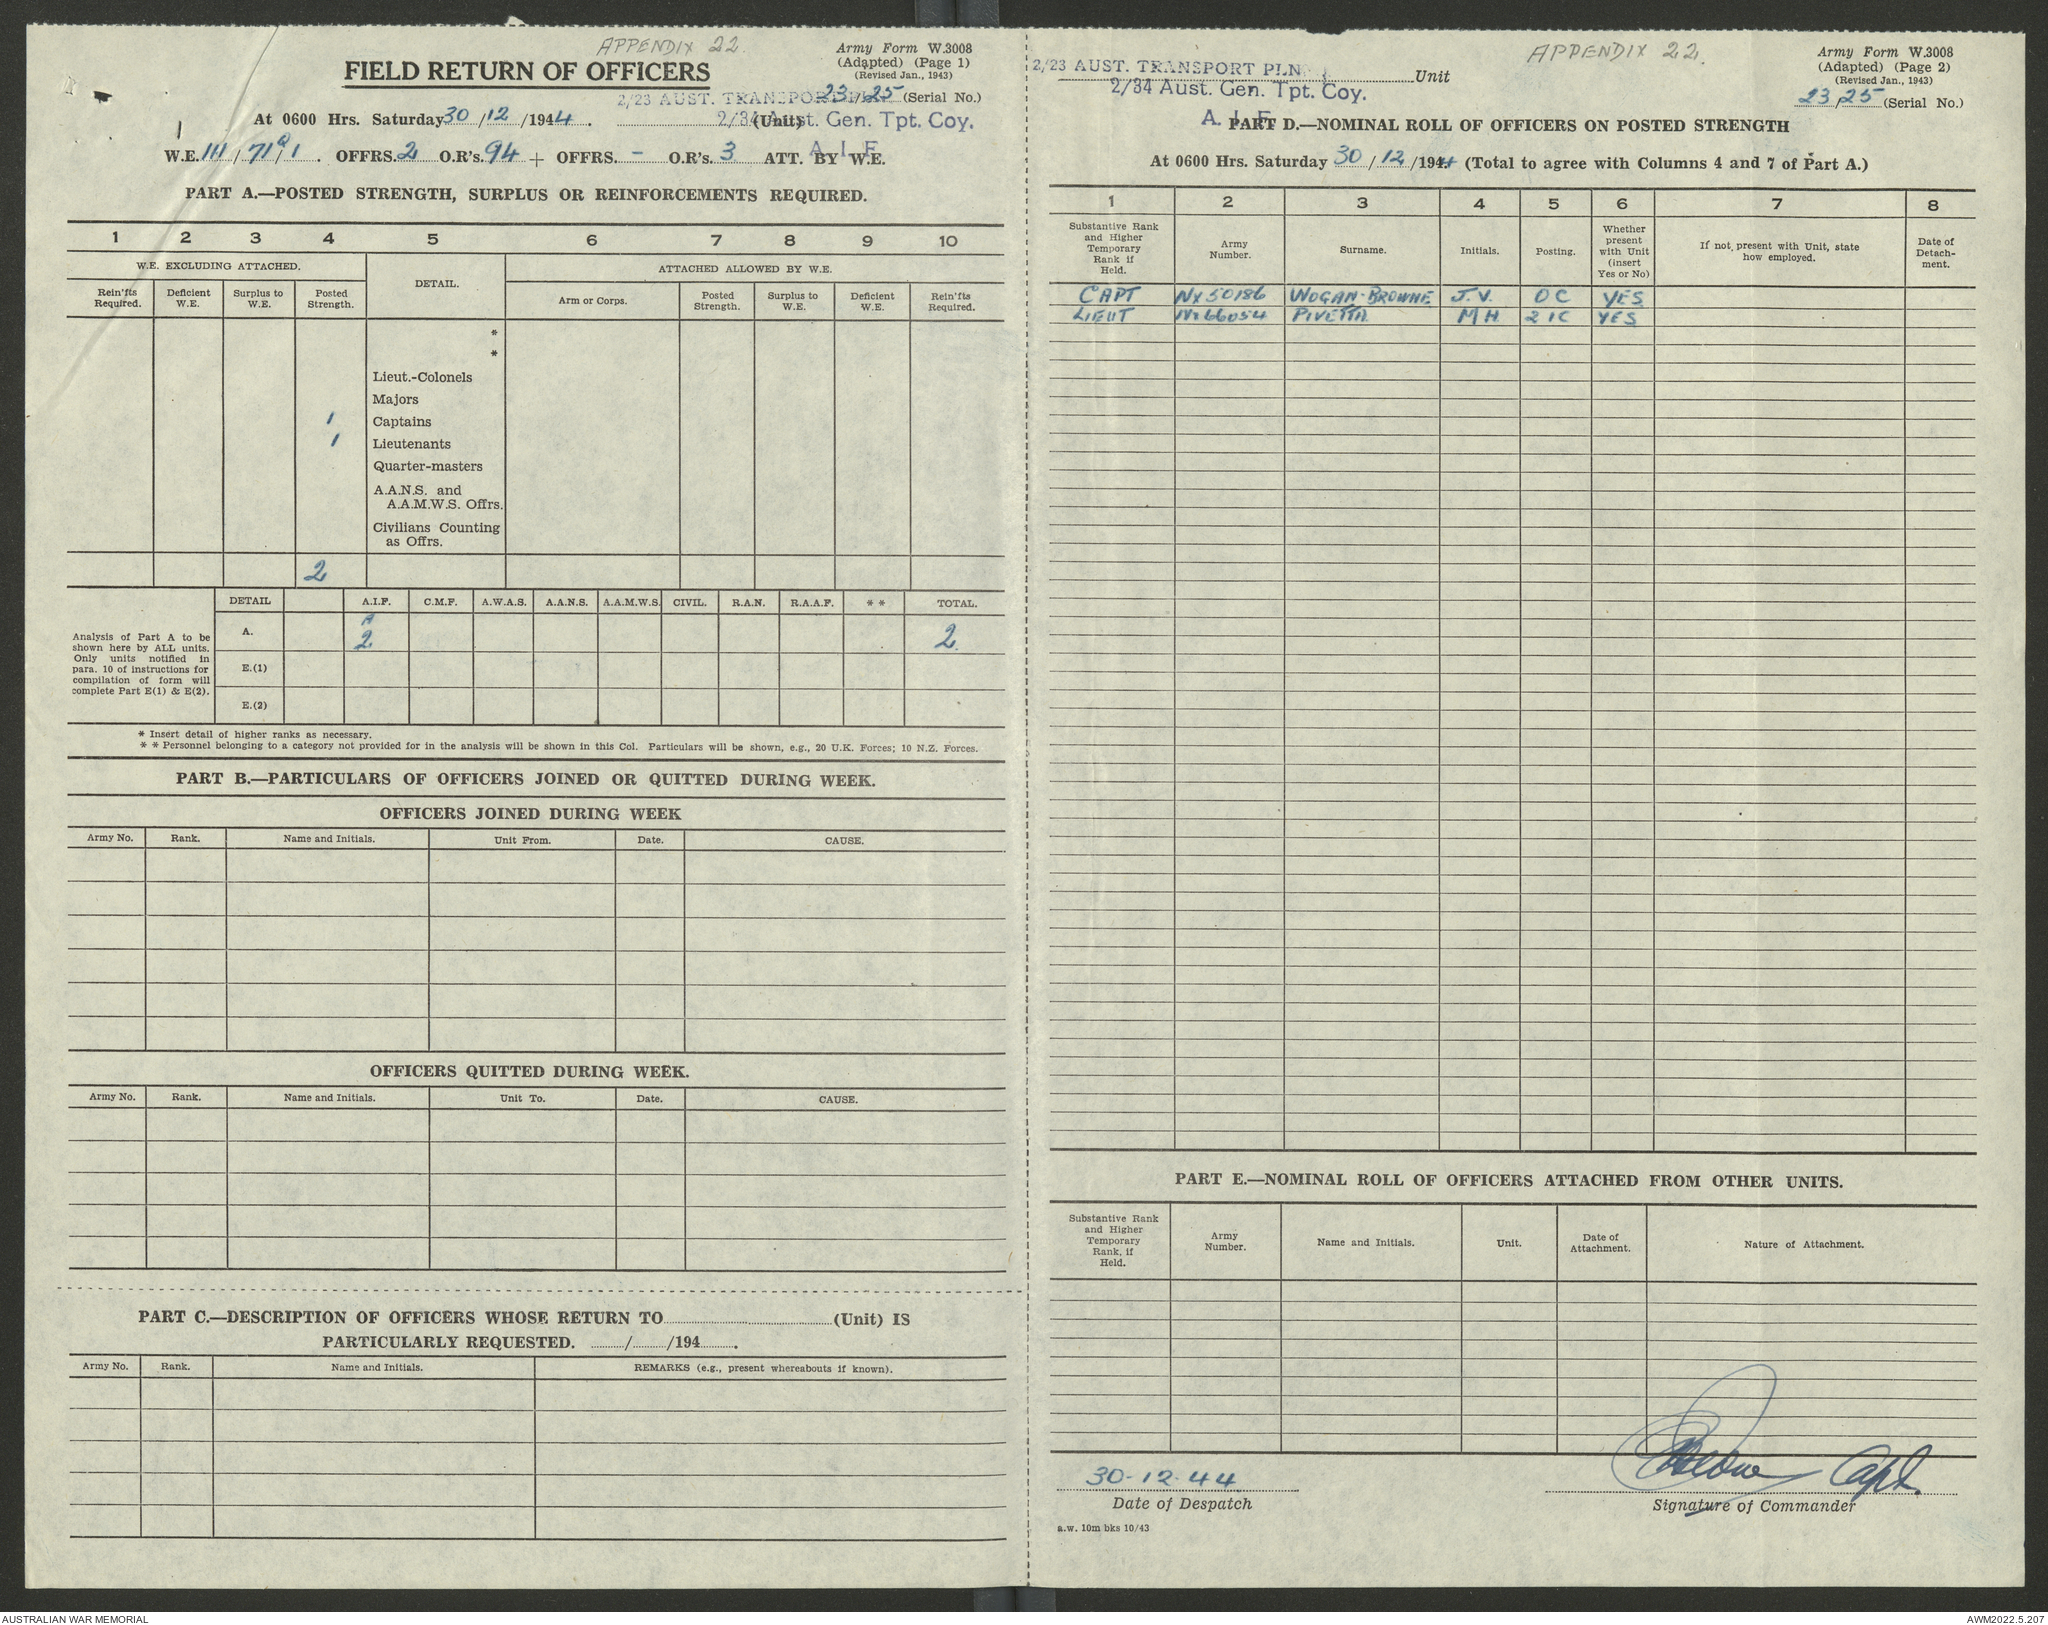 APPENDIX 22.
Army Form W.3008
(Adapted) (Page 1)
(Revised Jan., 1943)
FIELD RETURN OF OFFICERS
2/23 AUST. TRANSPORT PLN
23/25 (Serial No.)
At 0600 Hrs. Saturday 30/12/1944. (Unit)
2/34 Aust. Gen. Tpt. Coy.
A. I. F.
W.E. III/71Q/1. OFFRS. 2 O.R's. 94 + OFFRS. - O.R's. 3 ATT. BY W.E.
PART A.—POSTED STRENGTH, SURPLUS OR REINFORCEMENTS REQUIRED.
1 2 3 4 5 6 7 8 9 10
W.E. EXCLUDING ATTACHED. DETAIL. ATTACHED ALLOWED BY W.E.
Rein'fts Required. Deficient W.E. Surplus to W.E. Posted Strength. Arm or Corps. Posted Strength. Surplus to W.E. Deficient W.E. Rein'fts Required.
*
*
Lieut.-Colonels
Majors
1 Captains
1 Lieutenants
Quarter-masters
A.A.N.S. and
A.A.M.W.S. Offrs.
Civilians Counting
as Offrs.
2
DETAIL A.I.F. C.M.F. A.W.A.S. A.A.N.S. A.A.M.W.S. CIVIL. R.A.N. R.A.A.F. * * TOTAL.
Analysis of Part A to be
shown here by ALL units.
Only units notified in
para. 10 of instructions for
compilation of form will
complete Part E(1) & E(2).
A. 2 2
E.(1)
E.(2)
* Insert detail of higher ranks as necessary.
* * Personnel belonging to a category not provided for in the analysis will be shown in this Col. Particulars will be shown, e.g., 20 U.K. Forces; 10 N.Z. Forces.
PART B.—PARTICULARS OF OFFICERS JOINED OR QUITTED DURING WEEK.
OFFICERS JOINED DURING WEEK
Army No. Rank. Name and Initials. Unit From. Date. CAUSE.
OFFICERS QUITTED DURING WEEK.
Army No. Rank. Name and Initials. Unit To. Date. CAUSE.
PART C.—DESCRIPTION OF OFFICERS WHOSE RETURN TO (Unit) IS
PARTICULARLY REQUESTED. / /194 .
Army No. Rank. Name and Initials. REMARKS (e.g., present whereabouts if known).
APPENDIX 22.
Army Form W.3008
(Adapted) (Page 2)
(Revised Jan., 1943)
2/23 AUST. TRANSPORT PLN Unit
2/34 Aust. Gen. Tpt. Coy.
A. I. F.
23/25 (Serial No.)
PART D.—NOMINAL ROLL OF OFFICERS ON POSTED STRENGTH
At 0600 Hrs. Saturday 30/12/1944 (Total to agree with Columns 4 and 7 of Part A.)
1 2 3 4 5 6 7 8
Substantive Rank and Higher Temporary Rank if Held. Army Number. Surname. Initials. Posting. Whether present with Unit (insert Yes or No) If not present with Unit, state how employed. Date of Detach-ment.
CAPT NX50186 WOGAN-BROWNE J.V. OC YES
LIEUT NX66054 PIVETTA MH 2IC YES
PART E.—NOMINAL ROLL OF OFFICERS ATTACHED FROM OTHER UNITS.
Substantive Rank and Higher Temporary Rank, if Held. Army Number. Name and Initials. Unit. Date of Attachment. Nature of Attachment.
30-12-44 Capt.
Date of Despatch Signature of Commander
a.w. 10m bks 10/43
AUSTRALIAN WAR MEMORIAL AWM2022.5.207